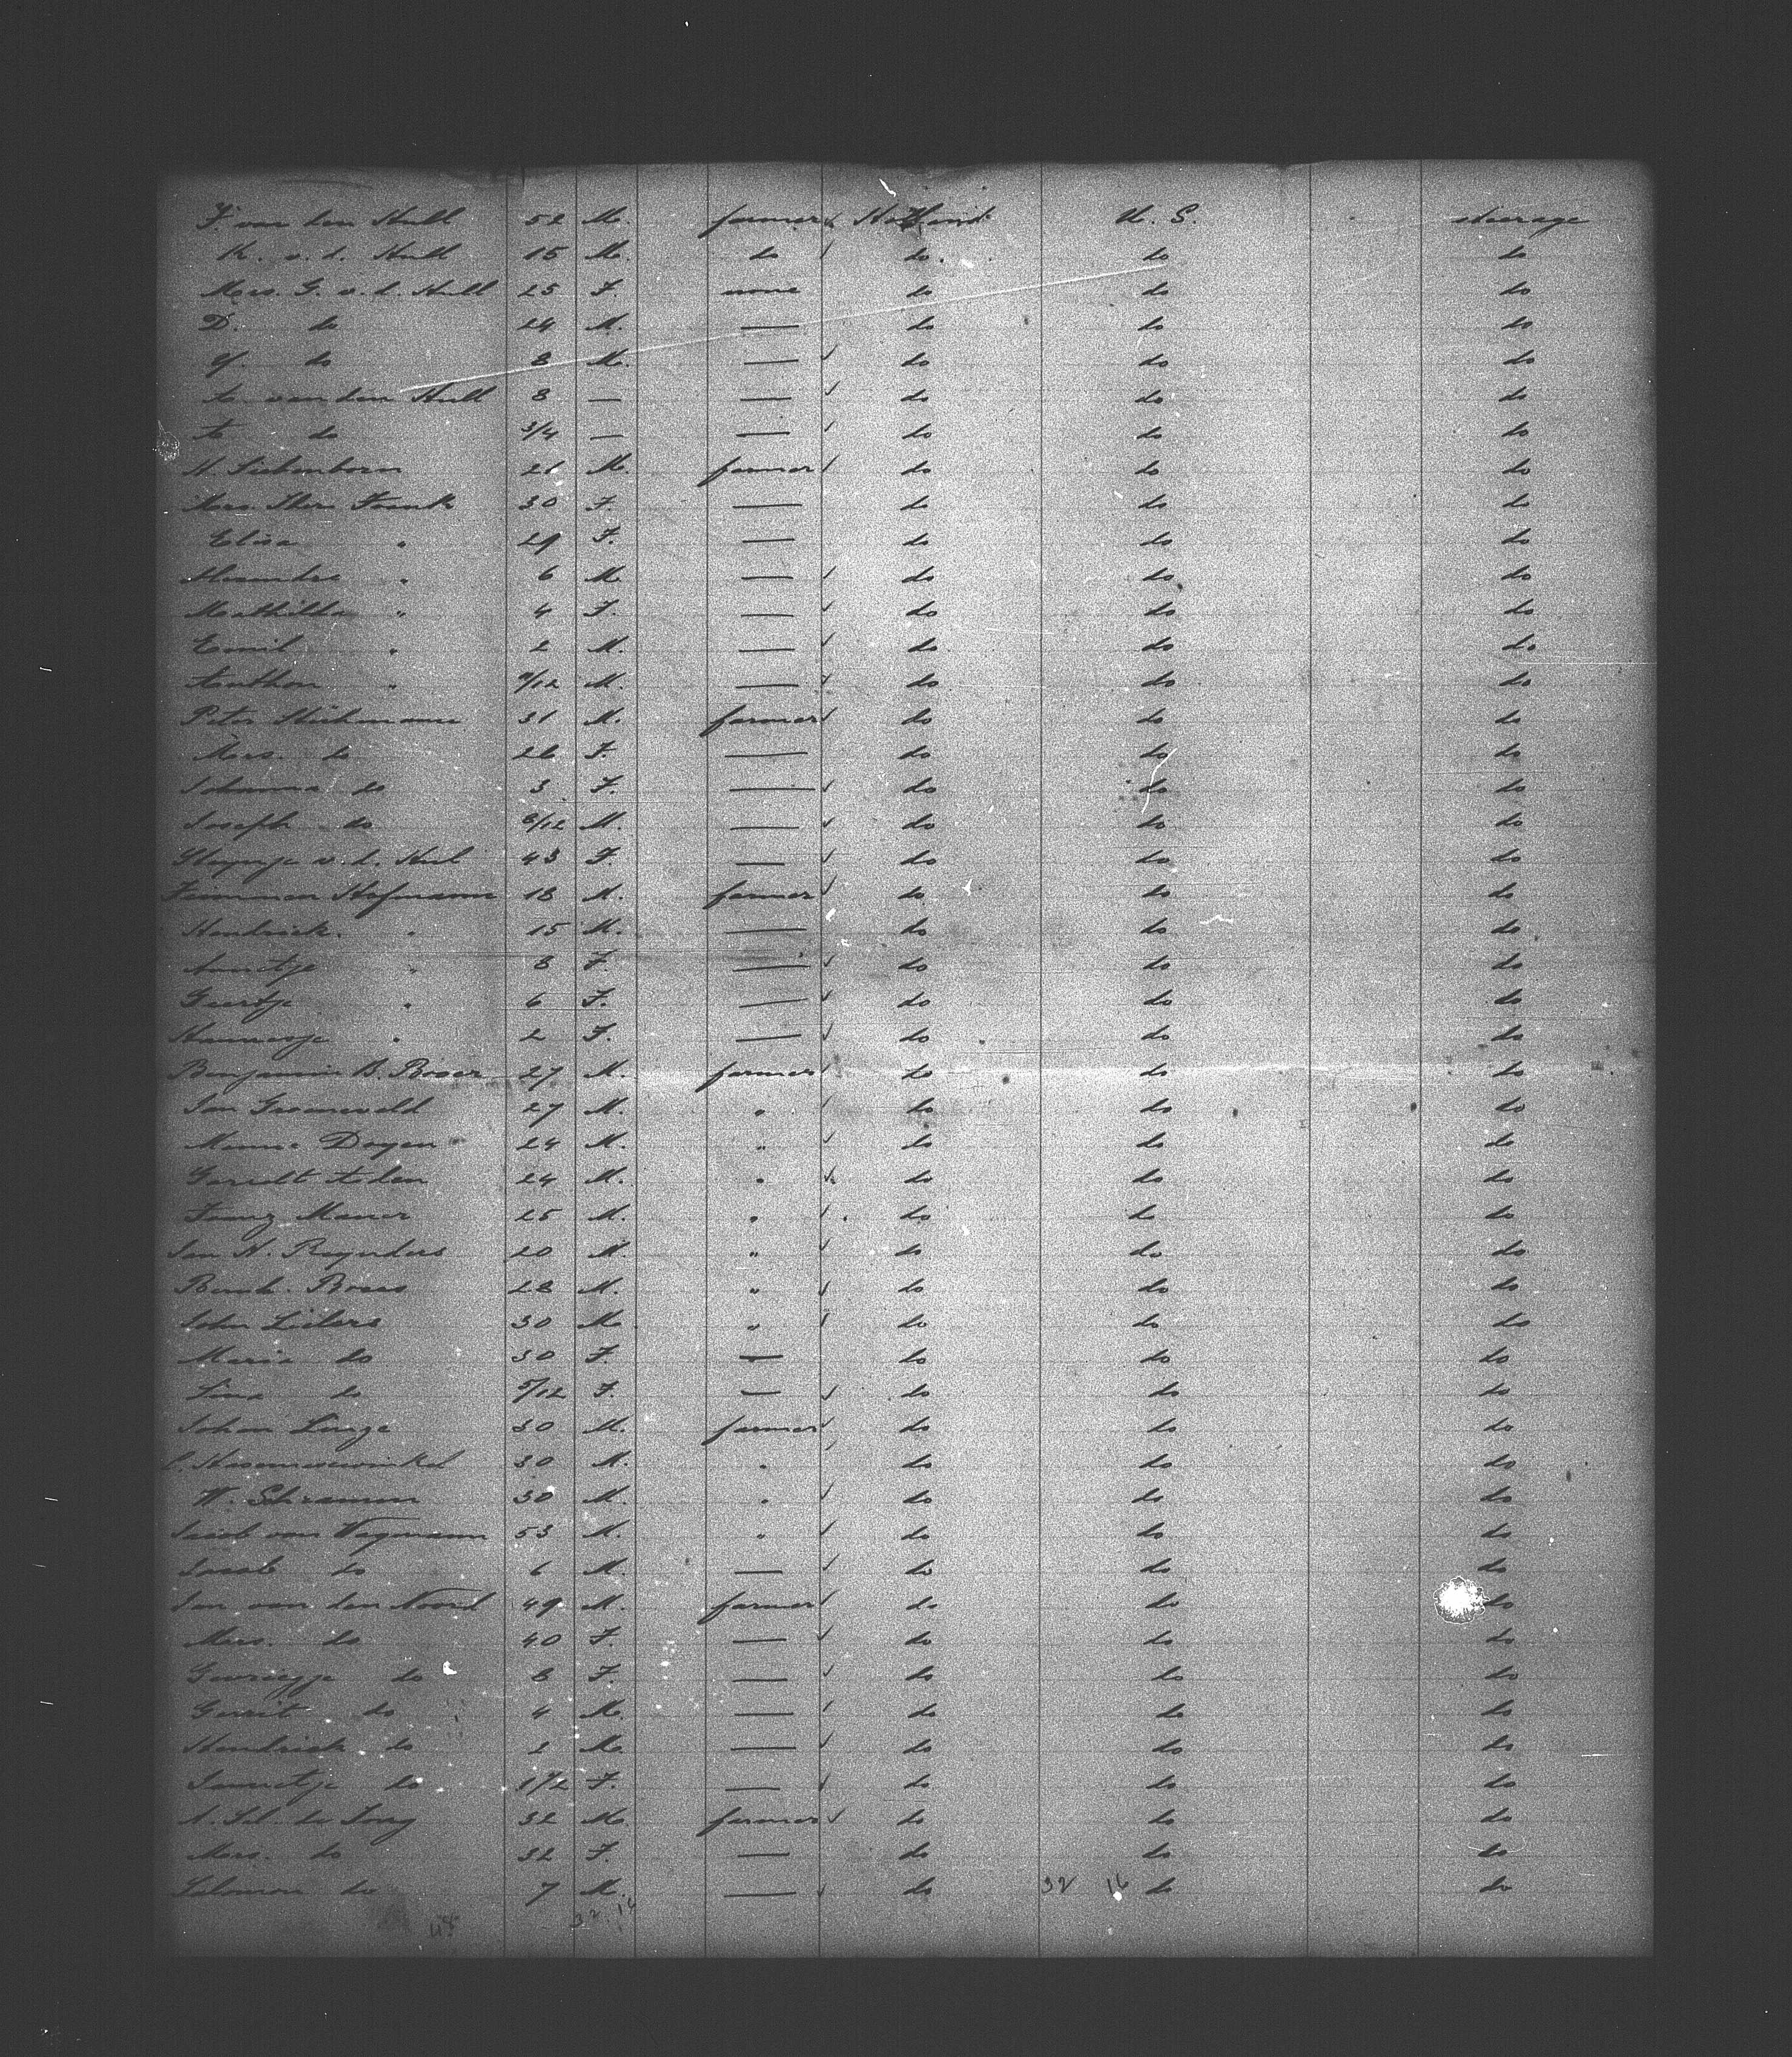 F. van den Hull 52 M. farmer Holland U. S. steerage
K. v. d. Hull 15 M. do do. do do
Mrs. G. v. d. Hull 25 F. none do do do
D. do 24 M. — do do do
G. do 8 M. — do do do
A. van den Hull 8 — — do do do
A do 3/4 — — do do do
H. Siebenborn 26 M. farmer do do do
Mrs. Ther. Frank 30 F. — do do do
Elisa " 29 F. — do do do
6 M. — do do do
Mathilde " 4 F. — do do do
Emil " 2 M. — do do do
Anthon " 9/12 M. — do do do
Peter Stiehmann 31 M. farmer do do do
Mrs. do 26 F. — do do do
Johanna do 3 F. — do do do
Joseph do 8/12 M. — do do do
v. d. Hul 43 F. — do do do
Hofmann 18 M. farmer do do do
Hendrick. " 15 M. — do do do
Annetje " 8 F. — do do do
Geertje " 6 F. — do do do
Hannesje " 2 F. — do do do
Benjamin B. Roser 27 M. farmer do do do
Jan Groeneveld 27 M. " do do do
Menne Doyen 24 M. " do do do
24 M. " do do do
Franz Maurer 25 M. " do do do
Jan H. Reynders 20 M. " do do do
Bernh. Roses 28 M. " do do do
John Lielers 30 M. " do do do
Maria do 30 F. — do do do
Lina do 5/12 F. — do do do
Johan Lange 30 M. farmer do do do
30 M. " do do do
W. Schramm 30 M. " do do do
Jacob van Wegmann 53 M. " do do do
Jacob do 6 M. — do do do
Jan van den Noord 49 M. farmer do do do
Mrs. do 40 F. — do do do
do 8 F. — do do do
Gerrit do 4 M. — do do do
Hendrick do 2 M. — do do do
Jannetje do 1/12 F. — do do do
de Jong 32 M. farmer do do do
Mrs. do 32 F. — do do do
Salomon do 7 M. — do 32 16 do do
48 32. 16